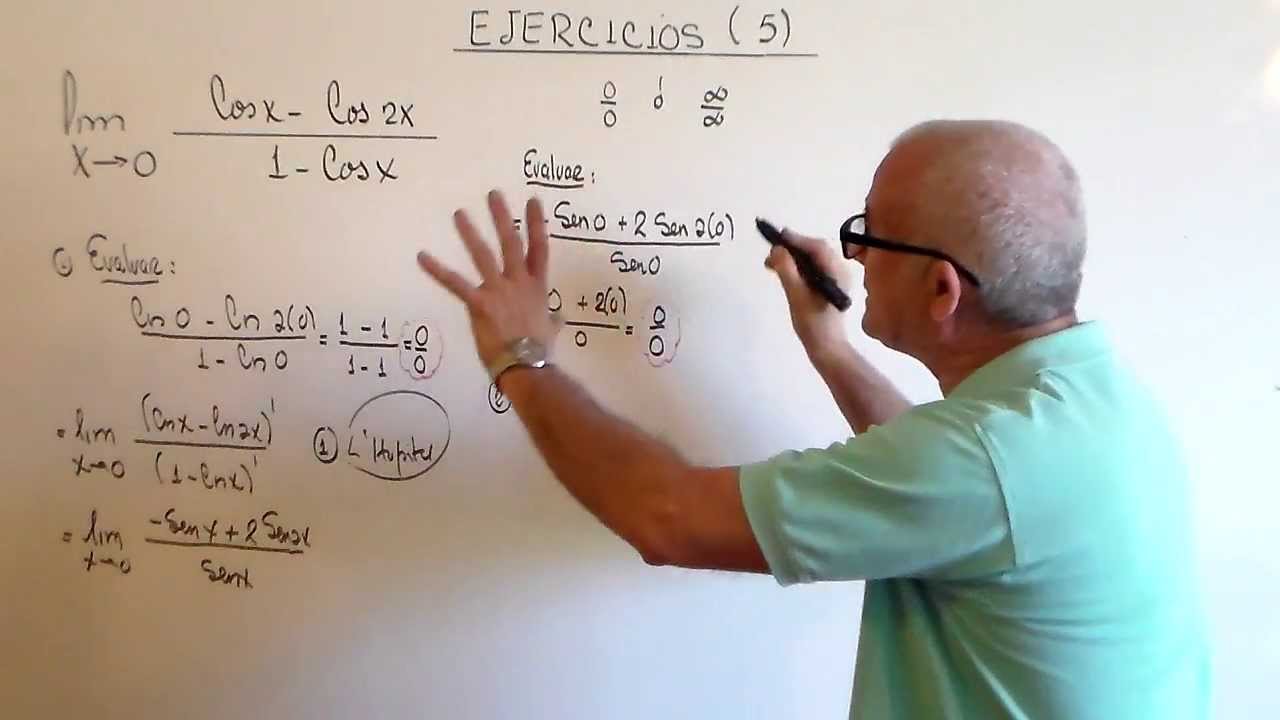 EJERCICIOS (5)
lim x→0 (Cosx - Cos 2x) / (1 - Cosx)
Evaluar:
(Cos 0 - Cos 2(0)) / (1 - Cos 0) = (1 - 1) / (1 - 1) = 0/0
= lim x→0 (Cosx - Cos2x)' / (1 - Cosx)'
① L'Hopital
= lim x→0 (-Senx + 2 Sen2x) / Senx
0/0 ó ∞/∞
Evaluar:
= - Sen 0 + 2 Sen 2(0) / Sen 0
0 + 2(0) / 0 = 0/0